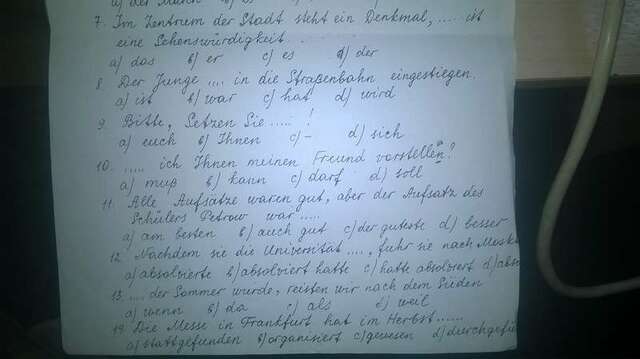 a) der Mann b) es
7. Im Zentrum der Stadt steht ein Denkmal, ..... ist
eine Sehenswürdigkeit.
a) das b) er c) es d) der
8. Der Junge .... in die Straßenbahn eingestiegen.
a) ist b) war c) hat d) wird
9. Bitte, Setzen Sie .....!
a) euch b) Ihnen c) – d) sich
10. ..... ich Ihnen meinen Freund vorstellen?
a) muß b) kann c) darf d) soll
11. Alle Aufsätze waren gut, aber der Aufsatz des
Schülers Petrow war .....
a) am besten b) auch gut c) der guteste d) besser
12. Nachdem sie die Universität ...., fuhr sie nach Moska
a) absolvierte b) absolviert hatte c) hatte absolviert d) abso
13. .... der Sommer wurde, reisten wir nach dem Süden
a) wenn b) da c) als d) weil
14. Die Messe in Frankfurt hat im Herbst ......
a) stattgefunden b) organisiert c) gewesen d) durchgefü